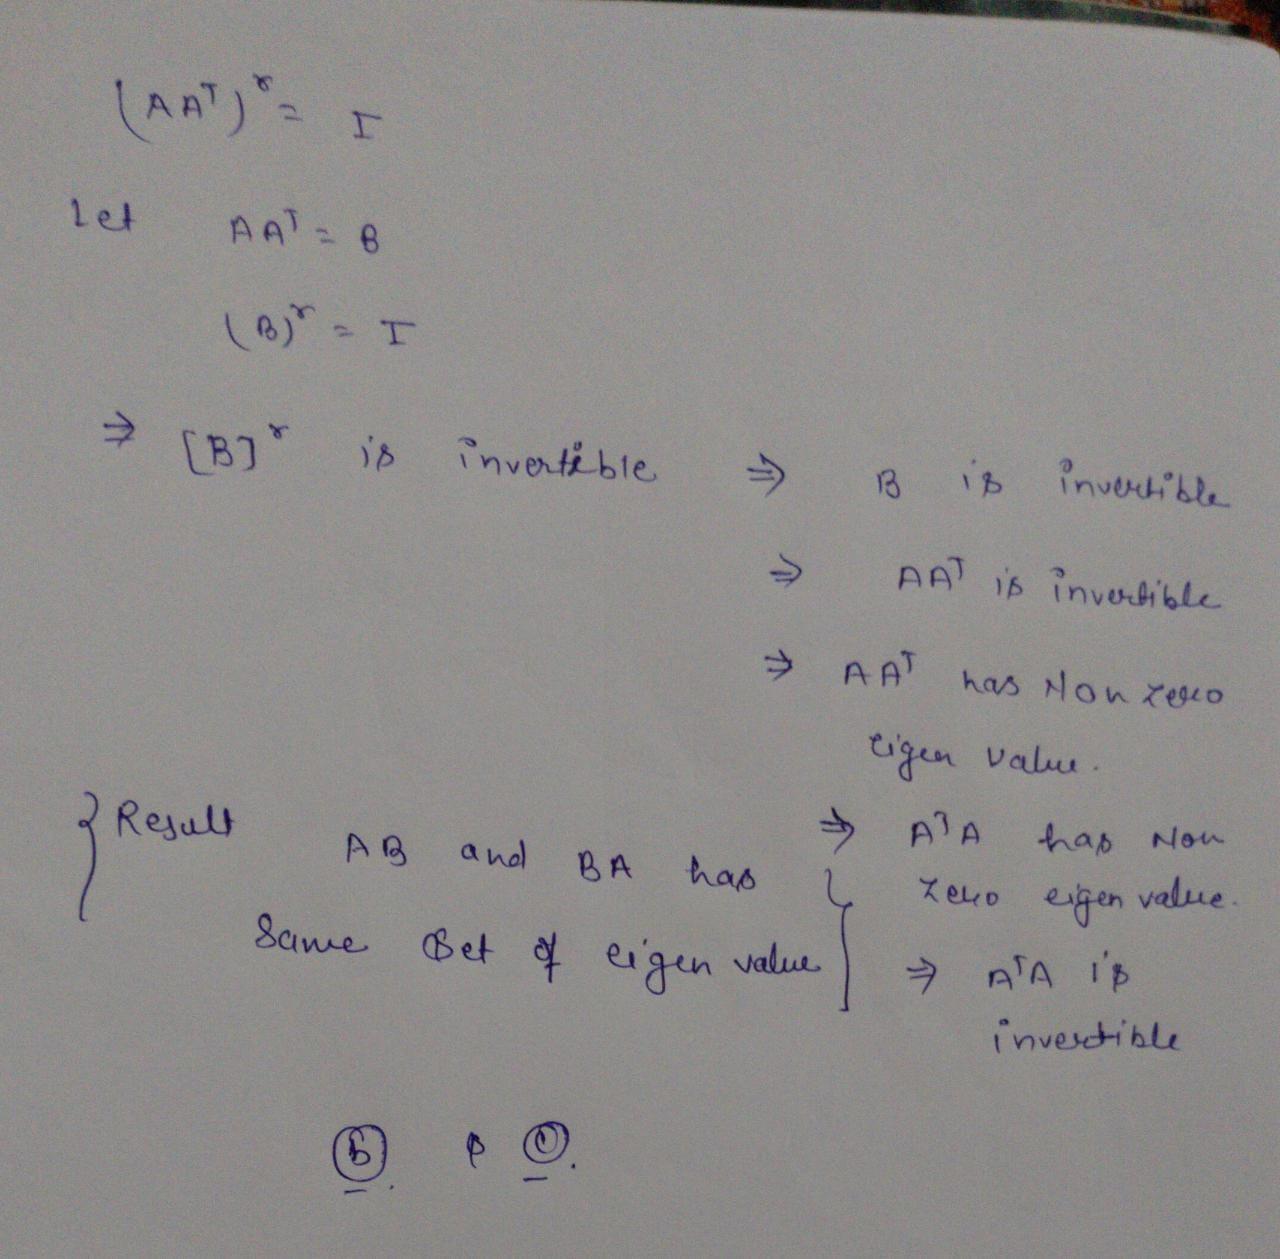 (AAᵀ)ʳ = I
Let AAᵀ = B
(B)ʳ = I
⇒ [B]ʳ is invertible ⇒ B is invertible
⇒ AAᵀ is invertible
⇒ AAᵀ has Non zero
eigen value.
{ Result AB and BA has
Same Set of eigen value }
⇒ AᵀA has Non
zero eigen value.
⇒ AᵀA is
invertible
(b). & (c).